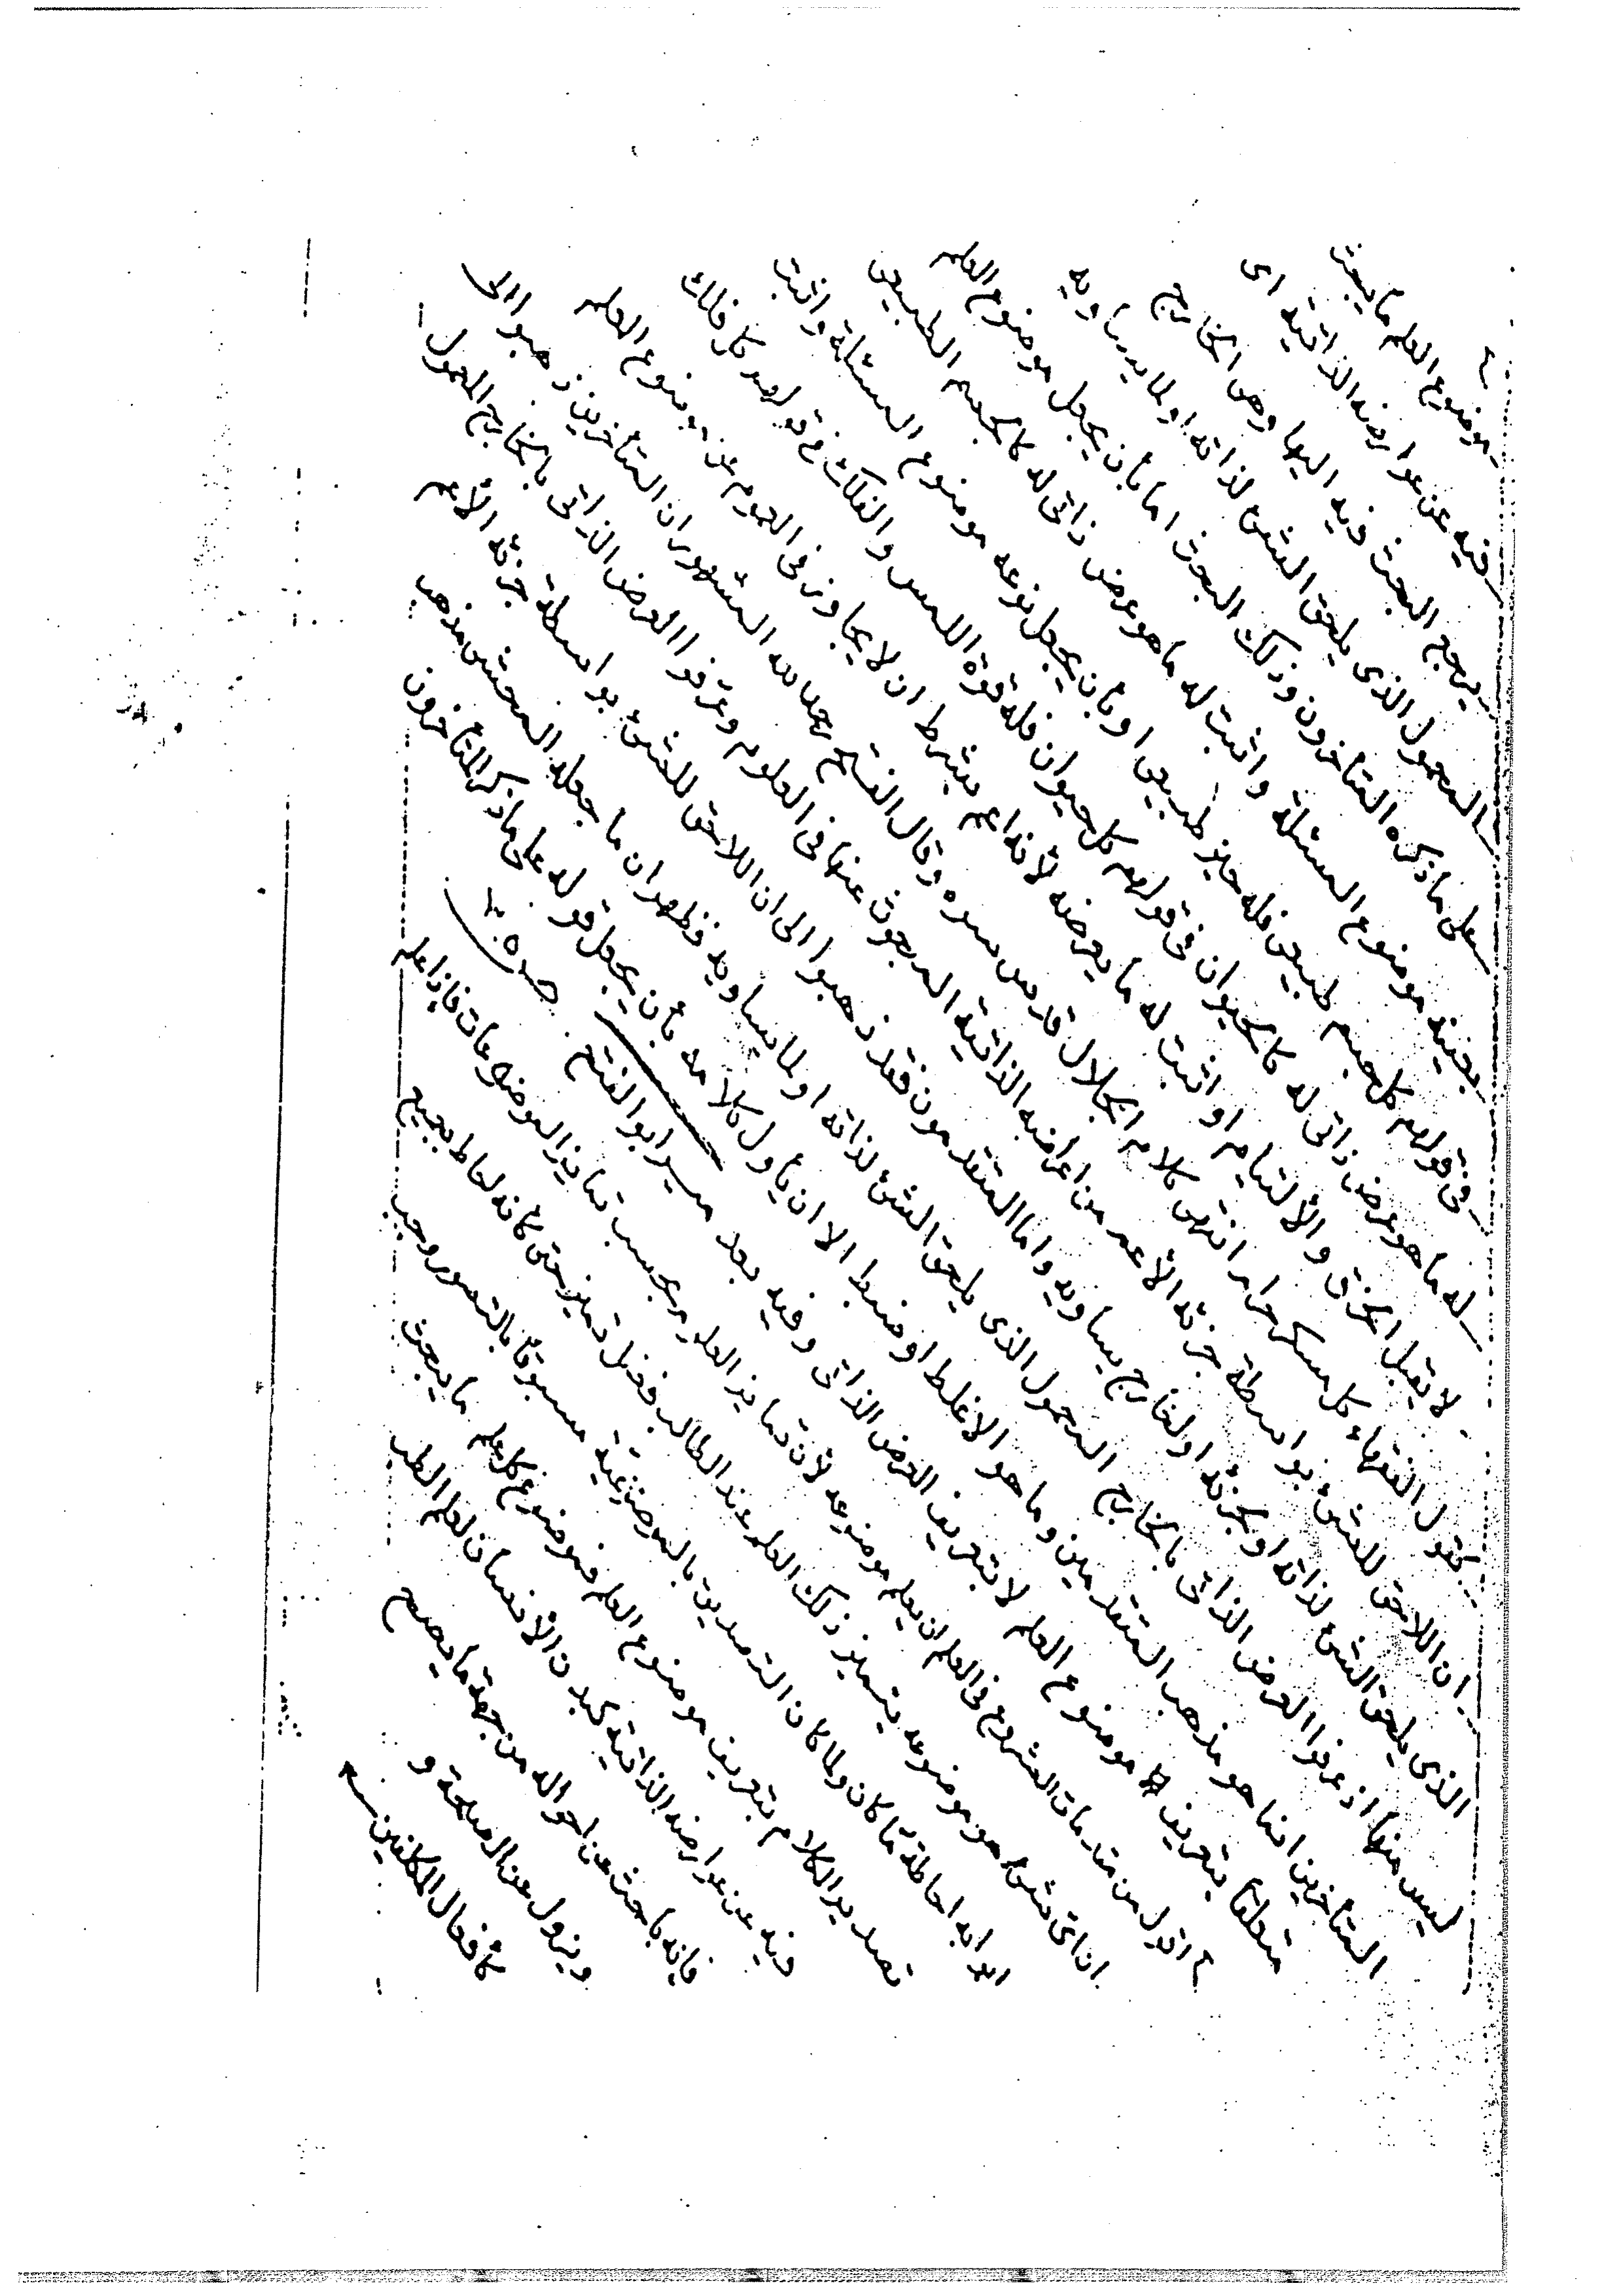 موضوع العلم ما يبحث
فيه عن عوارضه الذاتية اى
يرجع البحث فيه اليها وهى الخارج
المحمول الذى يلحق الشئ لذاته او لما يساويه
على ما ذكره المتأخرون وذلك البحث اما بأن يجعل موضوع العلم
بعينه موضوع المسئلة واثبت له ما هو عرض ذاتى له كالجسم الطبيعى
فى قولهم كل جسم طبيعى فله حيز طبيعى او بأن يجعل نوعه موضوع المسئلة واثبت
له ما هو عرض ذاتى له كالحيوان فى قولهم كل حيوان فله قوة اللمس والفلك فى قولهم كل فلك
لا يقبل الخرق والألتيام او اثبت له ما يعرضه لأنه اعم بشرط ان لا يجاوز فى العموم عن موضوع العلم
كقول الفقهاء كل مسكر حرام انتهى كلام الجلال قدس سره وقال الفتح رحمه الله المشهور ان المتأخرين ذهبوا الى
ان اللاحق للشئ بواسطة جزئه الأعم من اعراضه الذاتية المبحوث عنها فى العلوم وعرفوا العرض الذاتى بالخارج المحمول
الذى يلحق الشئ لذاته او لجزئه او لخارج يساويه واما المتقدمون فقد ذهبوا الى ان اللاحق للشئ بواسطة جزئه الأعم
ليس منها اذ عرفوا العرض الذاتى بالخارج المحمول الذى يلحق الشئ لذاته او لما يساويه فظهر ان ما جعله المحشى مذهب
المتأخرين انما هو مذهب المتقدمين وما هو الا غلط او ضبط الا ان يأول كلامه بأن يجعل قوله على ما ذكر المتأخرون
متعلقا بتعريف موضوع العلم لا بتعريف العرض الذاتى وفيه بعد مير ابو الفتح
٢ اقول من مقدمات الشروع فى العلم ان يعلم موضوعه لأن تمايز العلوم بحسب تمايز الموضوعات فإذا علم
ان اى شئ هو موضوعه يتميز ذلك العلم عند الطالب فضل تميز حتى كأنه احاط بجميع
ابوابه احاطة ما كان ولما كان التصديق بالموضوعية مسبوقا بالتصور وجب
تصدير الكلام بتعريف موضوع العلم فموضوع كل علم ما يبحث
فيه عن عوارضه الذاتية كبدن الأنسان لعلم الطب
فإنه باحث عن احواله من جهة ما يصح
ويزول عن الصحة و
كأفعال المكلفين